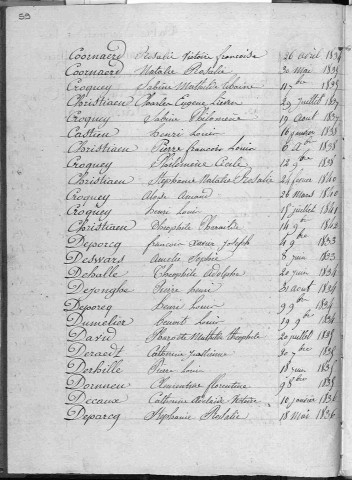 59
Coornaerd Rosalie Victoire françoise 26 avril 1834
Coornaerd Natalie Rosalie 30 mai 1835
Croquey Sabine Mathilde 11 7bre 1835
Christiaen Charles Eugene 29 juillet 1837
Croquey Sabine Philomène 19 Aout 1837
Castieu henri Louis 16 1838
Christiaen Pierre francois Louis 6 1838
Croquey Philomène Cécile 12 9bre 1838
Christiaen Stephanie Natalie Rosalie 24 1840
Croquey Aloïse Amand 26 Mars 1840
Croquey henri Louis 15 juillet 1841
Christiaen Théophile 14 9bre 1842
Deporcq francois Xavier Joseph 4 9bre 1833
Deswars Amelie Sophie 8 juin 1833
Dehalle Théophile Adolphe 20 juin 1834
Dejonghe Pierre henri 31 aout 1834
Deporcq henri Louis 9 9bre 1834
Dumelier Benoit Louis 19 9bre 1834
David Mathilde Théophile 20 juillet 1835
Deraedt Catherine 30 7bre 1835
Derhille Pierre Louis 18 juin 1835
Dormieu Clementine florentine 9 8bre 1835
Decaux Catherine Adelaïde Victoire 10 janvier 1836
Deparcq Stephanie Rosalie 18 Mai 1836